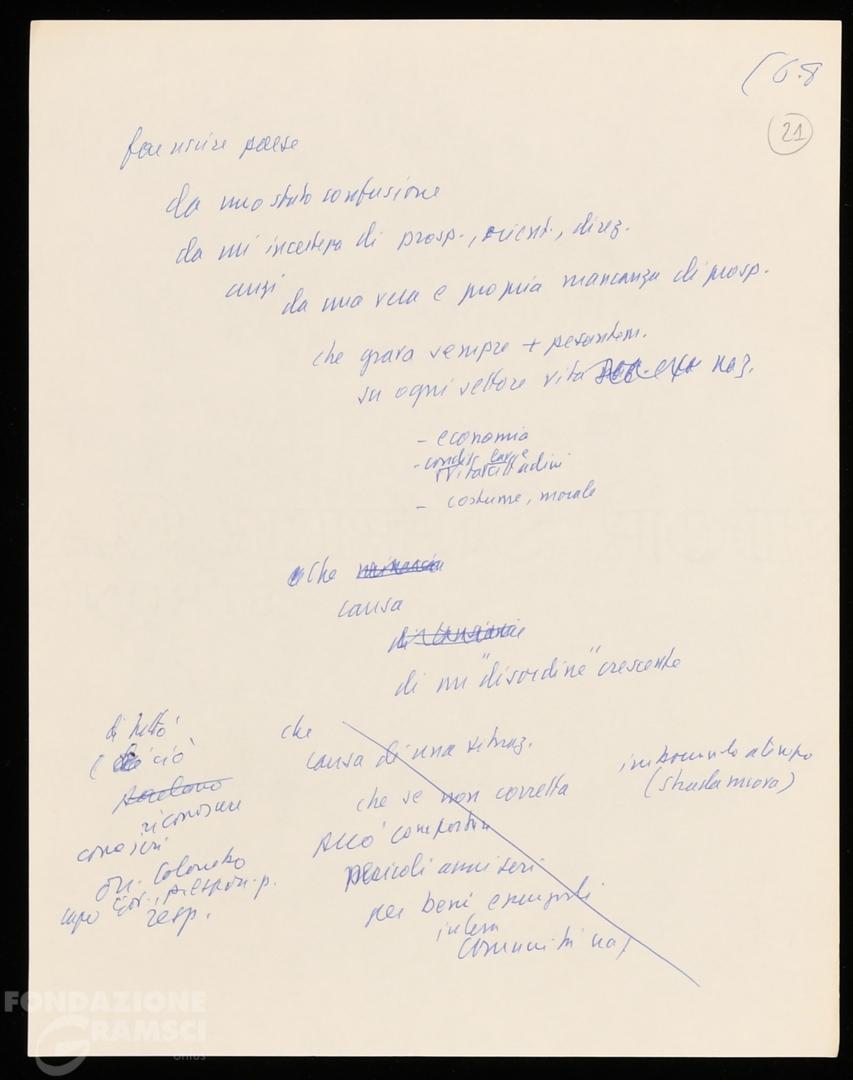 [6.8
21
far uscire paese
da uno stato confusione
da un' incertezza di prosp., orient., direz.
anzi
da una vera e propria mancanza di prosp.
che grava sempre + pesantem.
su ogni settore vita naz.
- economia
- condiz. larghe
vita cittadini
- costume, morale
che
causa
di un "disordine" crescente
di tutto
e ciò
riconoscere
on. Colombo
capo gov.,
resp.
che
causa di una situaz.
che se non corretta
può comportare
pericoli anni seri
per beni essenziali
intera
comunità naz
imboccando a tempo
(strada nuova)
FONDAZIONE
GRAMSCI
onlus